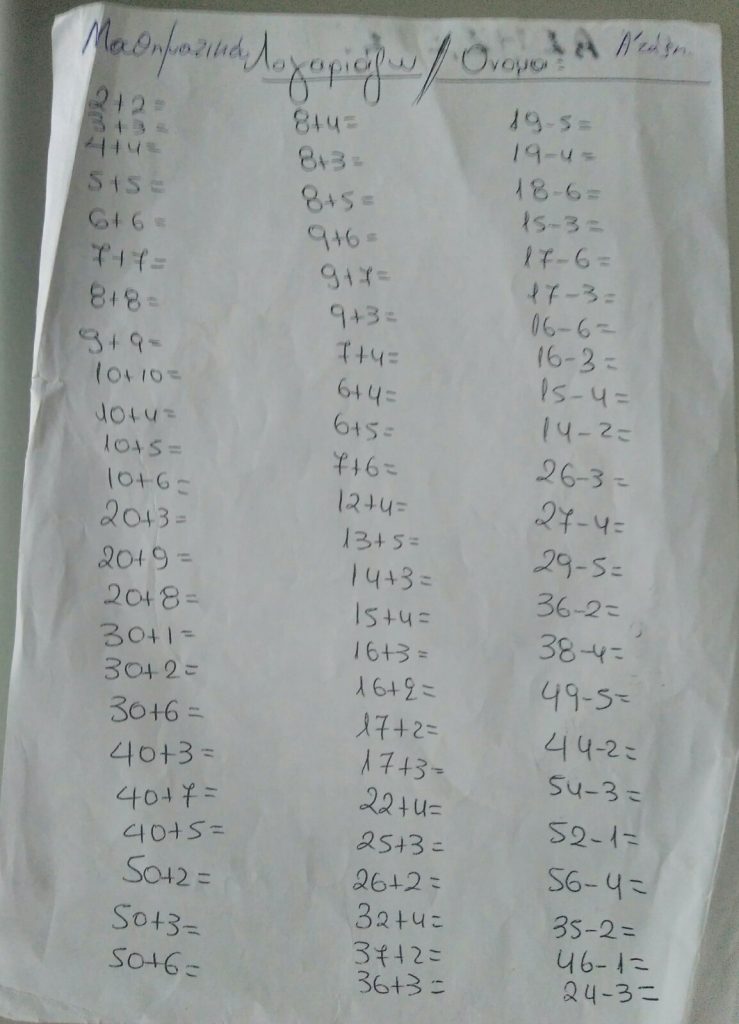 Μαθηματικά Λογαριάζω / Όνομα: Α' τάξη
2+2=
3+3=
4+4=
5+5=
6+6=
7+7=
8+8=
9+9=
10+10=
10+4=
10+5=
10+6=
20+3=
20+9=
20+8=
30+1=
30+2=
30+6=
40+3=
40+7=
40+5=
50+2=
50+3=
50+6=
8+4=
8+3=
8+5=
9+6=
9+7=
9+3=
7+4=
6+4=
6+5=
7+6=
12+4=
13+5=
14+3=
15+4=
16+3=
16+2=
17+2=
17+3=
22+4=
25+3=
26+2=
32+4=
37+2=
36+3=
19-5=
19-4=
18-6=
15-3=
17-6=
17-3=
16-6=
16-3=
15-4=
14-2=
26-3=
27-4=
29-5=
36-2=
38-4=
49-5=
44-2=
54-3=
52-1=
56-4=
35-2=
46-1=
24-3=